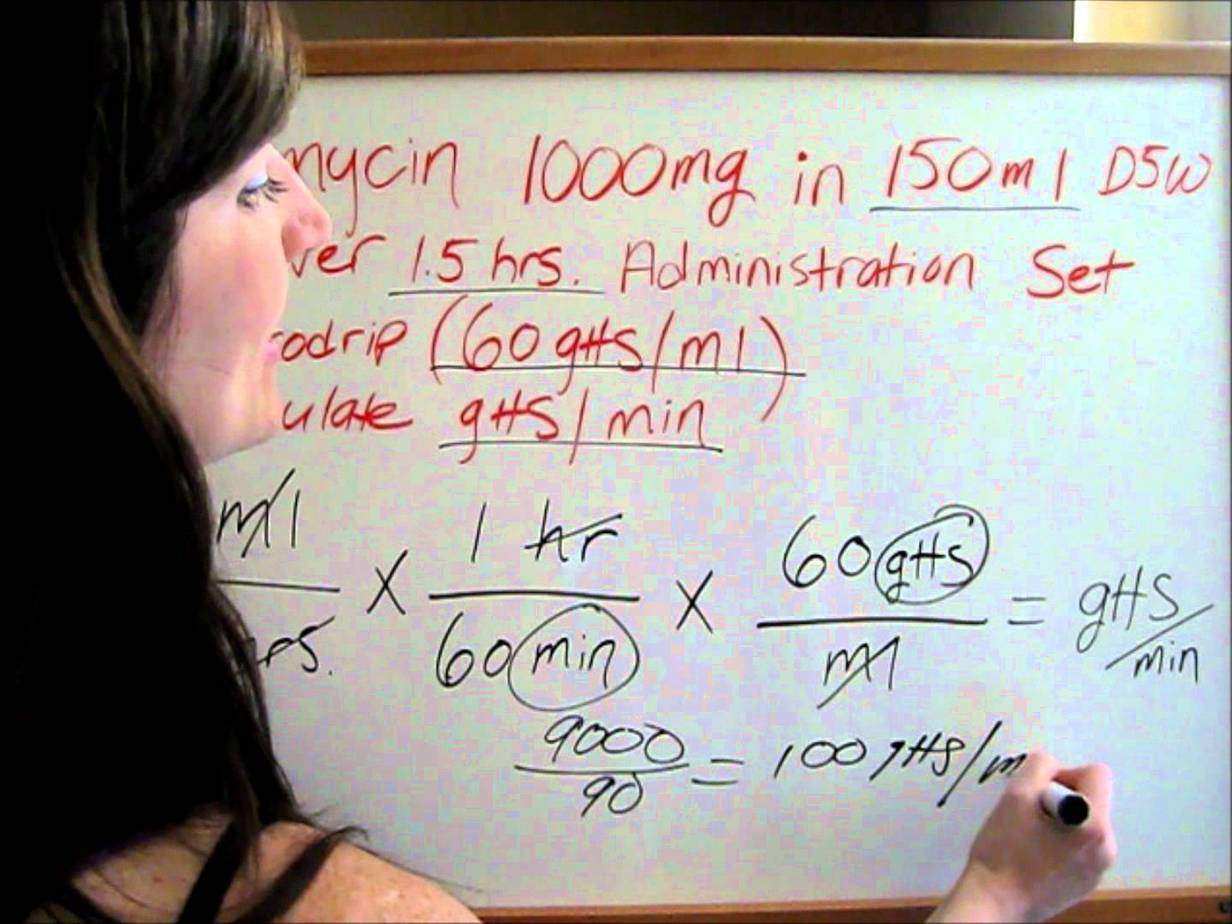 mycin 1000mg in 150ml D5W
ver 1.5 hrs. Administration Set
odrip (60 gtts/ml)
ulate gtts/min
ml × 1 hr / 60 min × 60 gtts / ml = gtts/min
hrs.
9000 / 90 = 100 gtts/m